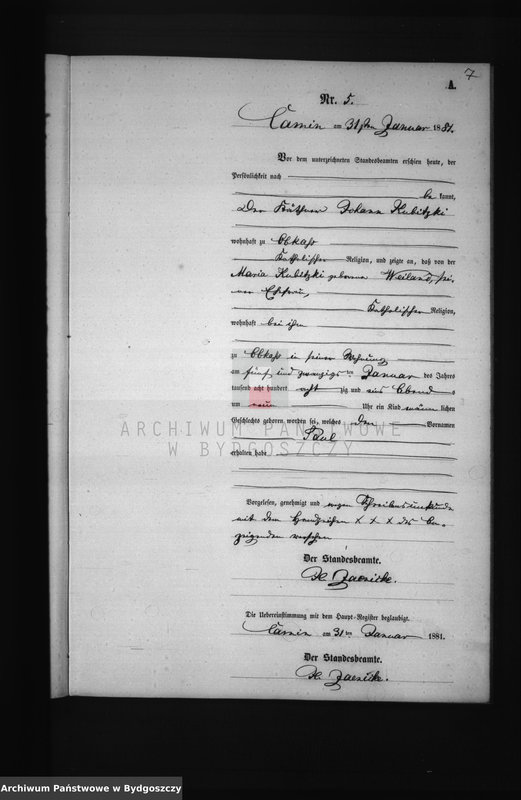 7
A.
Nr. 5.
Camin am 31sten Januar 1881.
Vor dem unterzeichneten Standesbeamten erschien heute, der
Persönlichkeit nach
be kannt,
Der Käthner Johann Kubitzki
wohnhaft zu Obkaß
Katholischer Religion, und zeigte an, daß von der
Maria Kubitzki geborene Weiland, sei-
ner Ehefrau,
Katholischer Religion,
wohnhaft bei ihm
zu Obkaß in seiner Wohnung
am fünf und zwanzigsten Januar des Jahres
tausend acht hundert acht zig und eins Abends
um neun Uhr ein Kind männ lichen
Geschlechts geboren worden sei, welches den Vornamen
Paul
erhalten habe
ARCHIWUM PAŃSTWOWE
W BYDGOSZCZY
Vorgelesen, genehmigt und wegen Schreibensunkunde
mit dem Handzeichen x x x des An-
zeigenden versehen
Der Standesbeamte.
Die Uebereinstimmung mit dem Haupt-Register beglaubigt.
Camin am 31ten Januar 1881.
Der Standesbeamte.
Archiwum Państwowe w Bydgoszczy